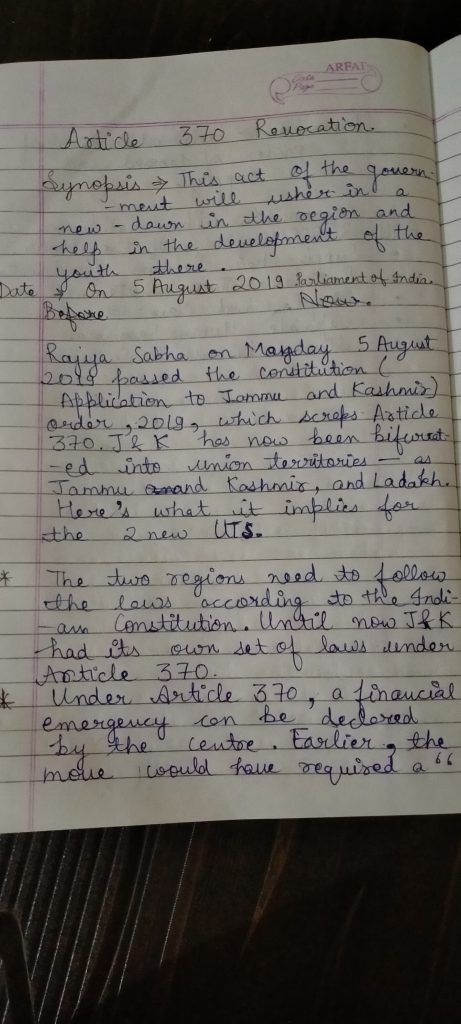 ARFAT
Date
Page
Article 370 Revocation.
Synopsis → This act of the govern-
-ment will usher in a
new-dawn in the region and
help in the development of the
youth there.
Date → On 5 August 2019 Parliament of India.
Before Now.
Rajya Sabha on Monday 5 August
2019 passed the constitution (
Application to Jammu and Kashmir)
order, 2019, which scraps Article
370. J & K has now been bifurcat-
-ed into union territories — as
Jammu and Kashmir, and Ladakh.
Here's what it implies for
the 2 new UTS.
* The two regions need to follow
the laws according to the Indi-
-an Constitution. Until now J & K
had its own set of laws under
Article 370.
* Under Article 370, a financial
emergency can be declared
by the centre. Earlier, the
move would have required a "